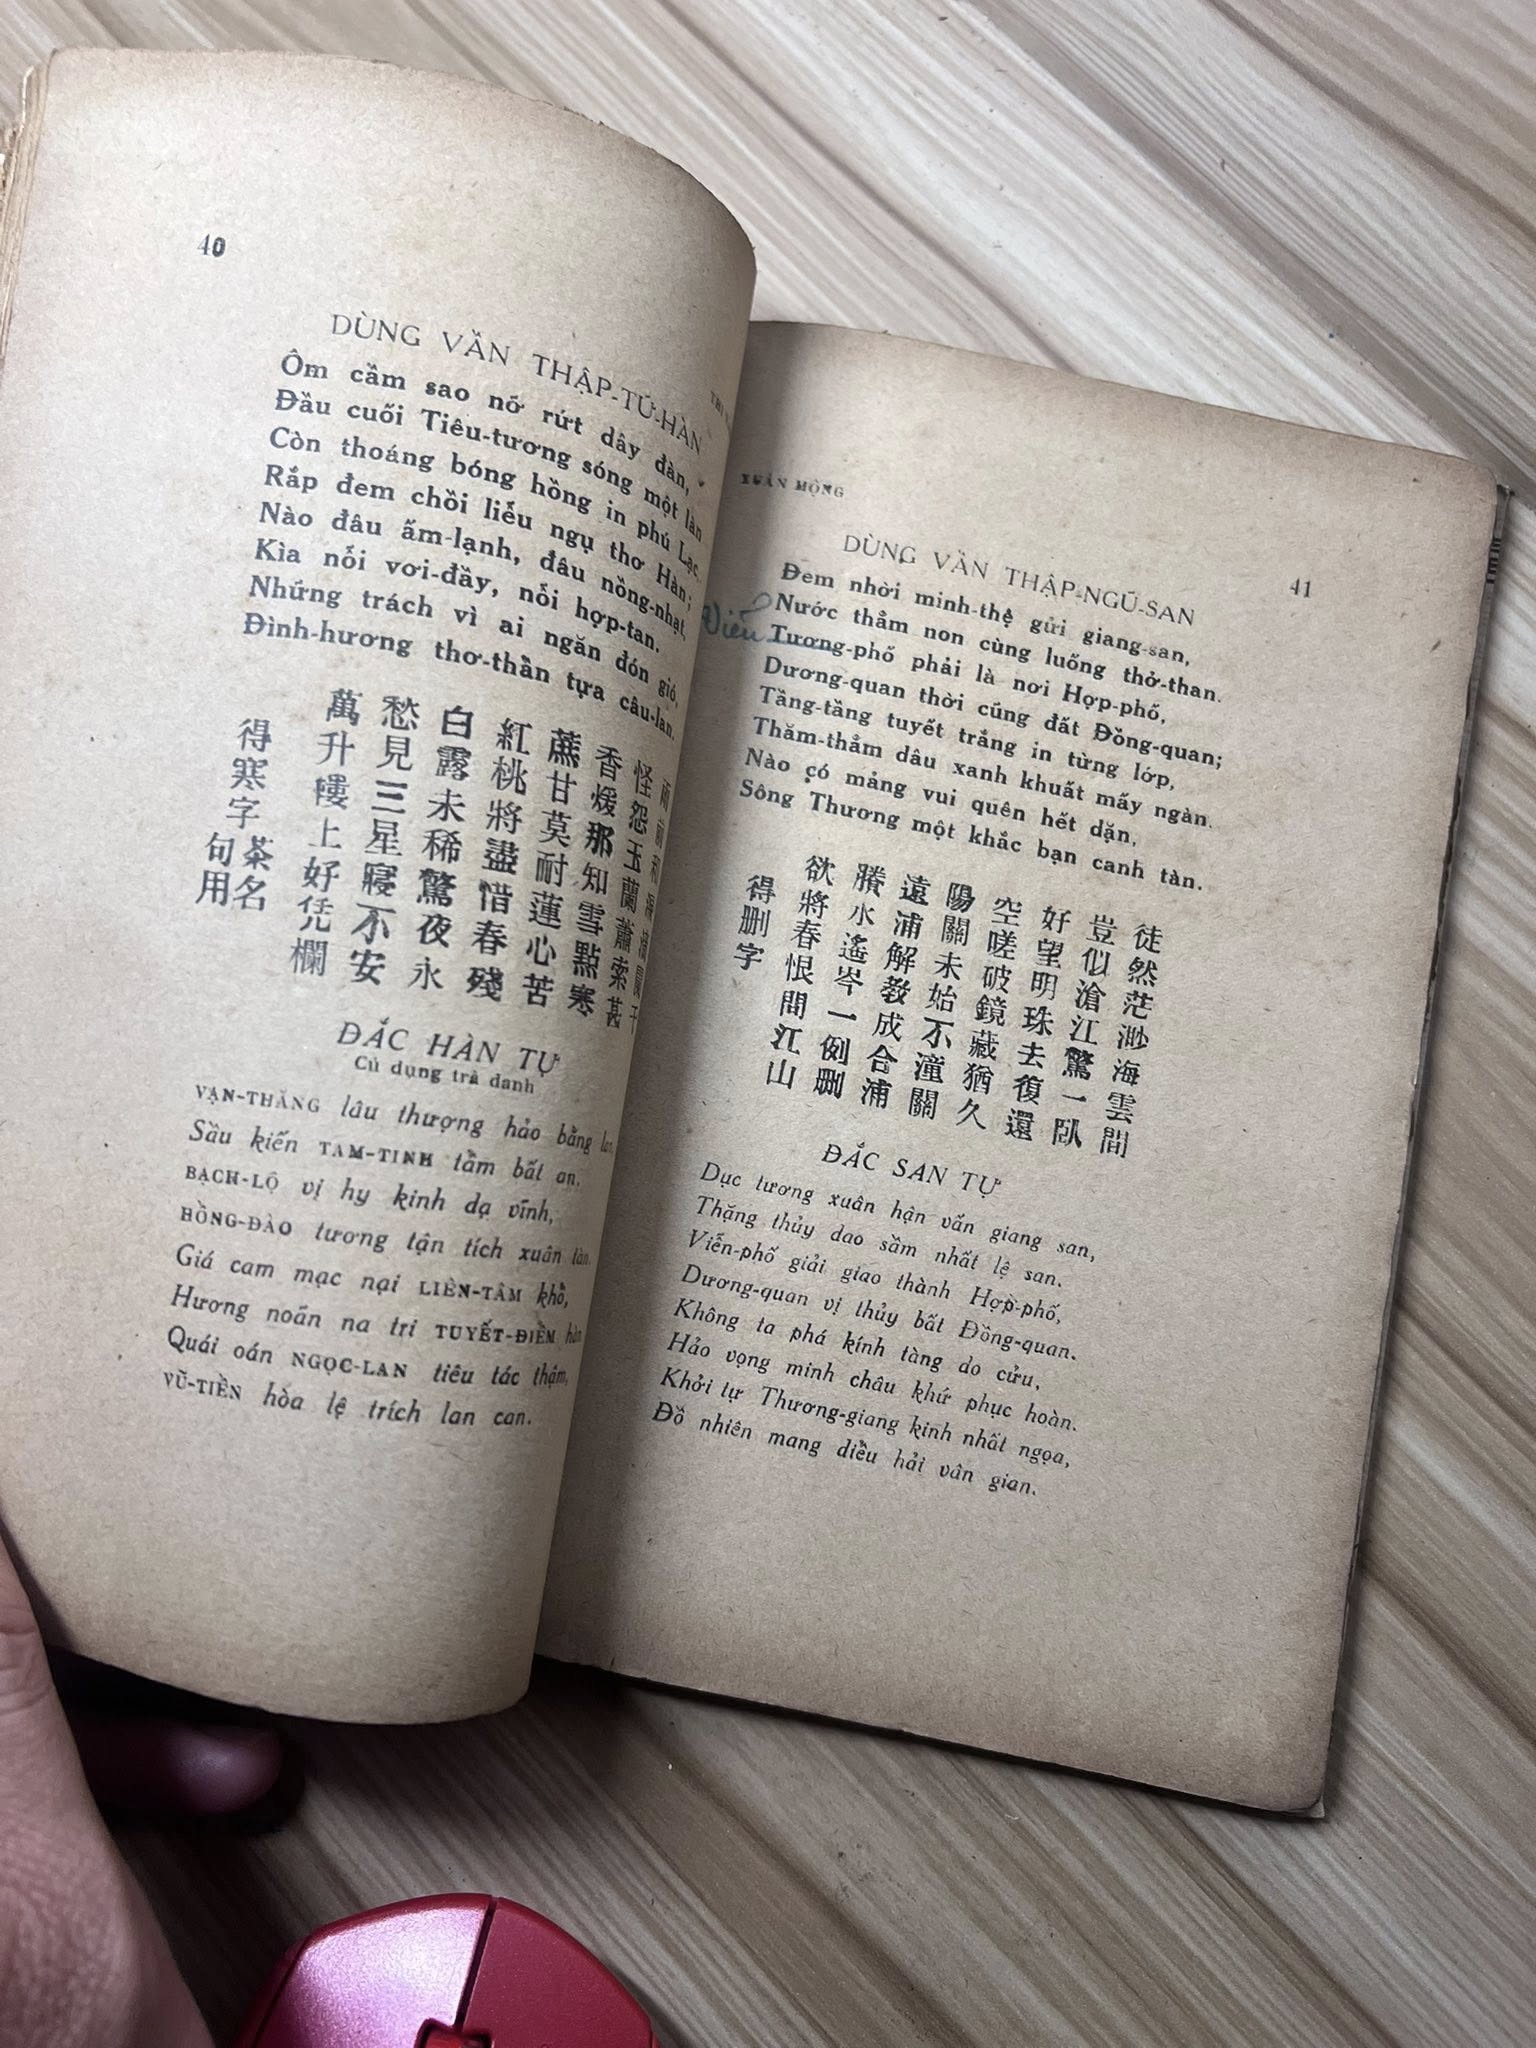 40
DÙNG VẦN THẬP-TỨ-HÀN
Ôm cầm sao nỡ rứt dây đàn,
Đầu cuối Tiêu-tương sóng một làn
Còn thoáng bóng hồng in phủ Lạc,
Rắp đem chồi liễu ngụ thơ Hàn;
Nào đâu ấm-lạnh, đâu nồng-nhạt,
Kìa nỗi vơi-đầy, nỗi hợp-tan.
Những trách vì ai ngăn đón gió,
Đình-hương thơ-thẩn tựa câu-lan.
怪怨玉蘭蕭索甚
香煖那知雪點寒
蔗甘莫耐蓮心苦
紅桃將盡惜春殘
白露未稀驚夜永
愁見三星寢不安
萬升樓上好凭欄
得寒字
句用茶名
ĐẮC HÀN TỰ
Cú dụng trà danh
VẠN-THĂNG lâu thượng hảo bằng lan,
Sầu kiến TAM-TINH tầm bất an,
BẠCH-LỘ vị hy kinh dạ vĩnh,
HỒNG-ĐÀO tương tận tích xuân tàn.
Giá cam mạc nại LIÊN-TÂM khổ,
Hương noãn na tri TUYẾT-ĐIỀM hàn
Quái oán NGỌC-LAN tiêu tác thậm,
VŨ-TIỀN hòa lệ trích lan can.
XUÂN MỘNG
41
DÙNG VẦN THẬP-NGŨ-SAN
Đem nhời minh-thệ gửi giang-san,
Nước thẳm non cùng luống thở-than.
Viễn
Tương-phố phải là nơi Hợp-phố,
Dương-quan thời cũng đất Đồng-quan;
Tầng-tầng tuyết trắng in từng lớp,
Thăm-thẳm dâu xanh khuất mấy ngàn.
Nào có mảng vui quên hết dặn,
Sông Thương một khắc bạn canh tàn.
徒然茫渺海雲間
豈似滄江驚一臥
好望明珠去復還
空嗟破鏡藏猶久
陽關未始不潼關
遠浦解教成合浦
賸水遙岑一例删
欲將春恨問江山
得删字
ĐẮC SAN TỰ
Dục tương xuân hận vấn giang san,
Thặng thủy dao sầm nhất lệ san.
Viễn-phố giải giao thành Hợp-phố,
Dương-quan vị thủy bất Đồng-quan.
Không ta phá kính tàng do cửu,
Hảo vọng minh châu khứ phục hoàn.
Khởi tự Thương-giang kinh nhất ngọa,
Đồ nhiên mang diểu hải vân gian.